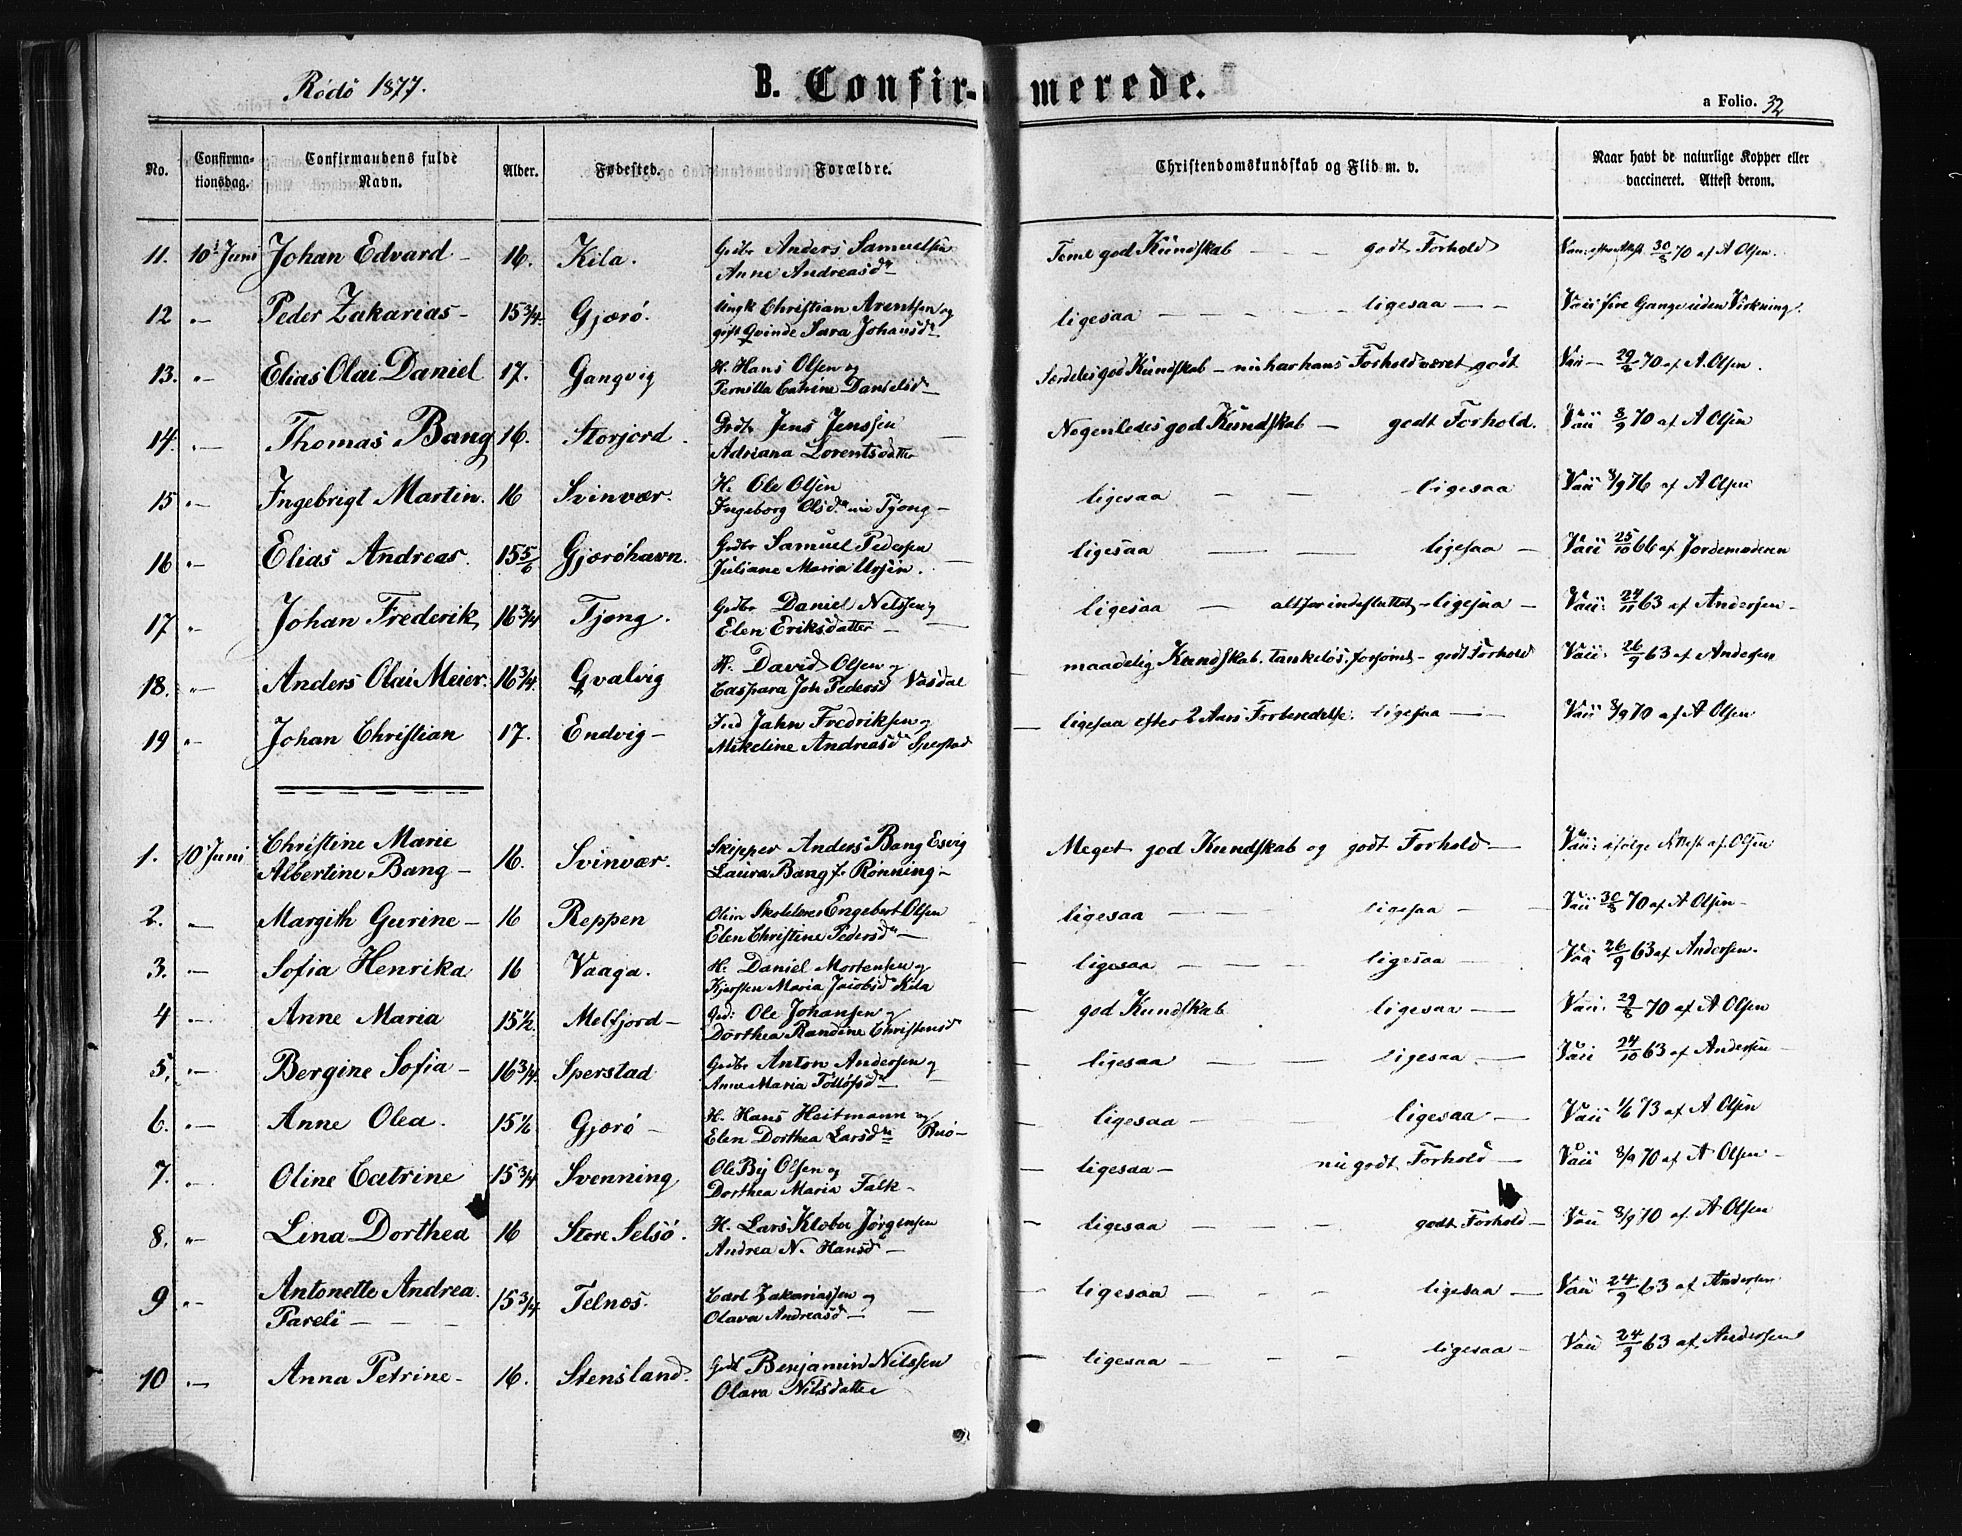 Rödö 1877.
B. Confirmerede.
a Folio. 32
No. Confirmationsdag. Confirmandens fulde Navn. Alder. Fødested. Forældre. Christendomskundskab og Flid m. v. Naar havt de naturlige Kopper eller vaccineret. Attest derom.
11. 10' Juni Johan Edvard - 16. Kila. Grdbr Anders Samuelsen Anne Andreasd - Temel god Kundskab - - - godt Forhold 30/8 70 af A Olsen.
12 " - Peder Zakarias - 15 3/4. Gjærö. Ungk Christian Arentsen og gift Qvinde Sara Johansd. ligesaa - - - ligesaa - - Vacc fire Gange uden Virkning.
13. " - Elias Olai Daniel 17. Gangvig H. Hans Olsen og Pernilla Catrine Danielsd - Særdeles god Kundskab - nu har hans Forhold været godt Vacc - 29/8 70 af A. Olsen.
14. " - Thomas Bang 16. Storjord. Grdbr Jens Jenssen Adriana Lorentsdatter Nogenledes god Kundskab - godt Forhold. Vacc 8/9 70 af A Olsen
15 " - Ingebrigt Martin. 16 Svinvær. H. Ole Olsen Ingeborg Olsd Tjong - ligesaa - - ligesaa Vacc 8/9 76 af A Olsen
16 " - Elias Andreas. 15 5/6 Gjæröhavn. Grdbr Samuel Pedersen Juliane Maria Ursin. ligesaa - - ligesaa - Vacc 25/10 66 af Jordemoderen
17 " - Johan Frederik 16 3/4 Tjong. Grdbr Daniel Nilssen og Elen Eriksdatter - ligesaa - altfor indesluttet - ligesaa - Vacc. 24/11 63 af Andersen -
18. " - Anders Olai Meier. 16 3/4. Qvalvig H. David Olsen og Caspara Joh Pedersd Vasdal maadelig Kundskab. tankelös. forsömt - godt Forhold Vacc. 26/9 63 af Andersen
19 " - Johan Christian 17. Endvig - Ind Jahn Fredriksen og Mikeline Andreasd Sperstad ligesaa efter 2 Aars Forberedelse. ligesaa - - Vacc 8/9 70 af A Olsen
1. 10' Juni Christine Marie Albertine Bang - 16. Svinvær. Skipper Anders Bang Esvig Laura Bang f. Rönning - Meget god Kundskab og godt Forhold - Vacc. ifölge Attest af Olsen
2. " - Margith Gurine - 16 Reppen Olim Skolelærer Engebert Olsen Elen Christine Pedersd - ligesaa - - - ligesaa - Vacc 30/8 70 af A Olsen -
3. " - Sofia Henrika 16 Vaaga. H. Daniel Mortensen og Kjersten Maria Jacobsd Kila ligesaa - - - ligesaa - - Vac 26/9 63 af Andersen.
4 " - Anne Maria 15 1/2. Melfjord - Grd: Ole Johansen og Dorthea Randine Christensd god Kundskab ligesaa - Vacc. 29/8 70 af A Olsen
5. " - Bergine Sofia - 16 3/4. Sperstad Grdbr Anton Andersen og Anne Maria Tollöfsd - ligesaa - - ligesaa - Vacc 24/10 63 af Andersen -
6. " - Anne Olea. 15 1/6 Gjærö - H. Hans Heitmann og Elen Dorthea Larsd Rnö - ligesaa ligesaa - - Vacc 1/6 73 af A Olsen
7. " - Oline Catrine 15 3/4 Svenning Ole Bij Olsen og Dorthea Maria Falk - ligesaa - nu godt Forhold - Vacc 8/9 70 af A Olsen -
8. " - Lina Dorthea 16 Store Selsö. H. Lars Klæbo Jørgensen Andrea N. Hansd - ligesaa - - - godt Forhold - Vac 8/9 70 af A Olsen
9 " - Antonette Andrea. Pareli - - - 15 3/4 Telnæs. Carl Zakariassen og Olava Andreasd - ligesaa - - - ligesaa - Vacc 24/9 63 af Andersen
10 " - Anna Petrine - 16. Stensland. Grdb Benjamin Nilssen Olava Nilsdatter ligesaa - - - ligesaa - Vac 24/9 63 af Andersen